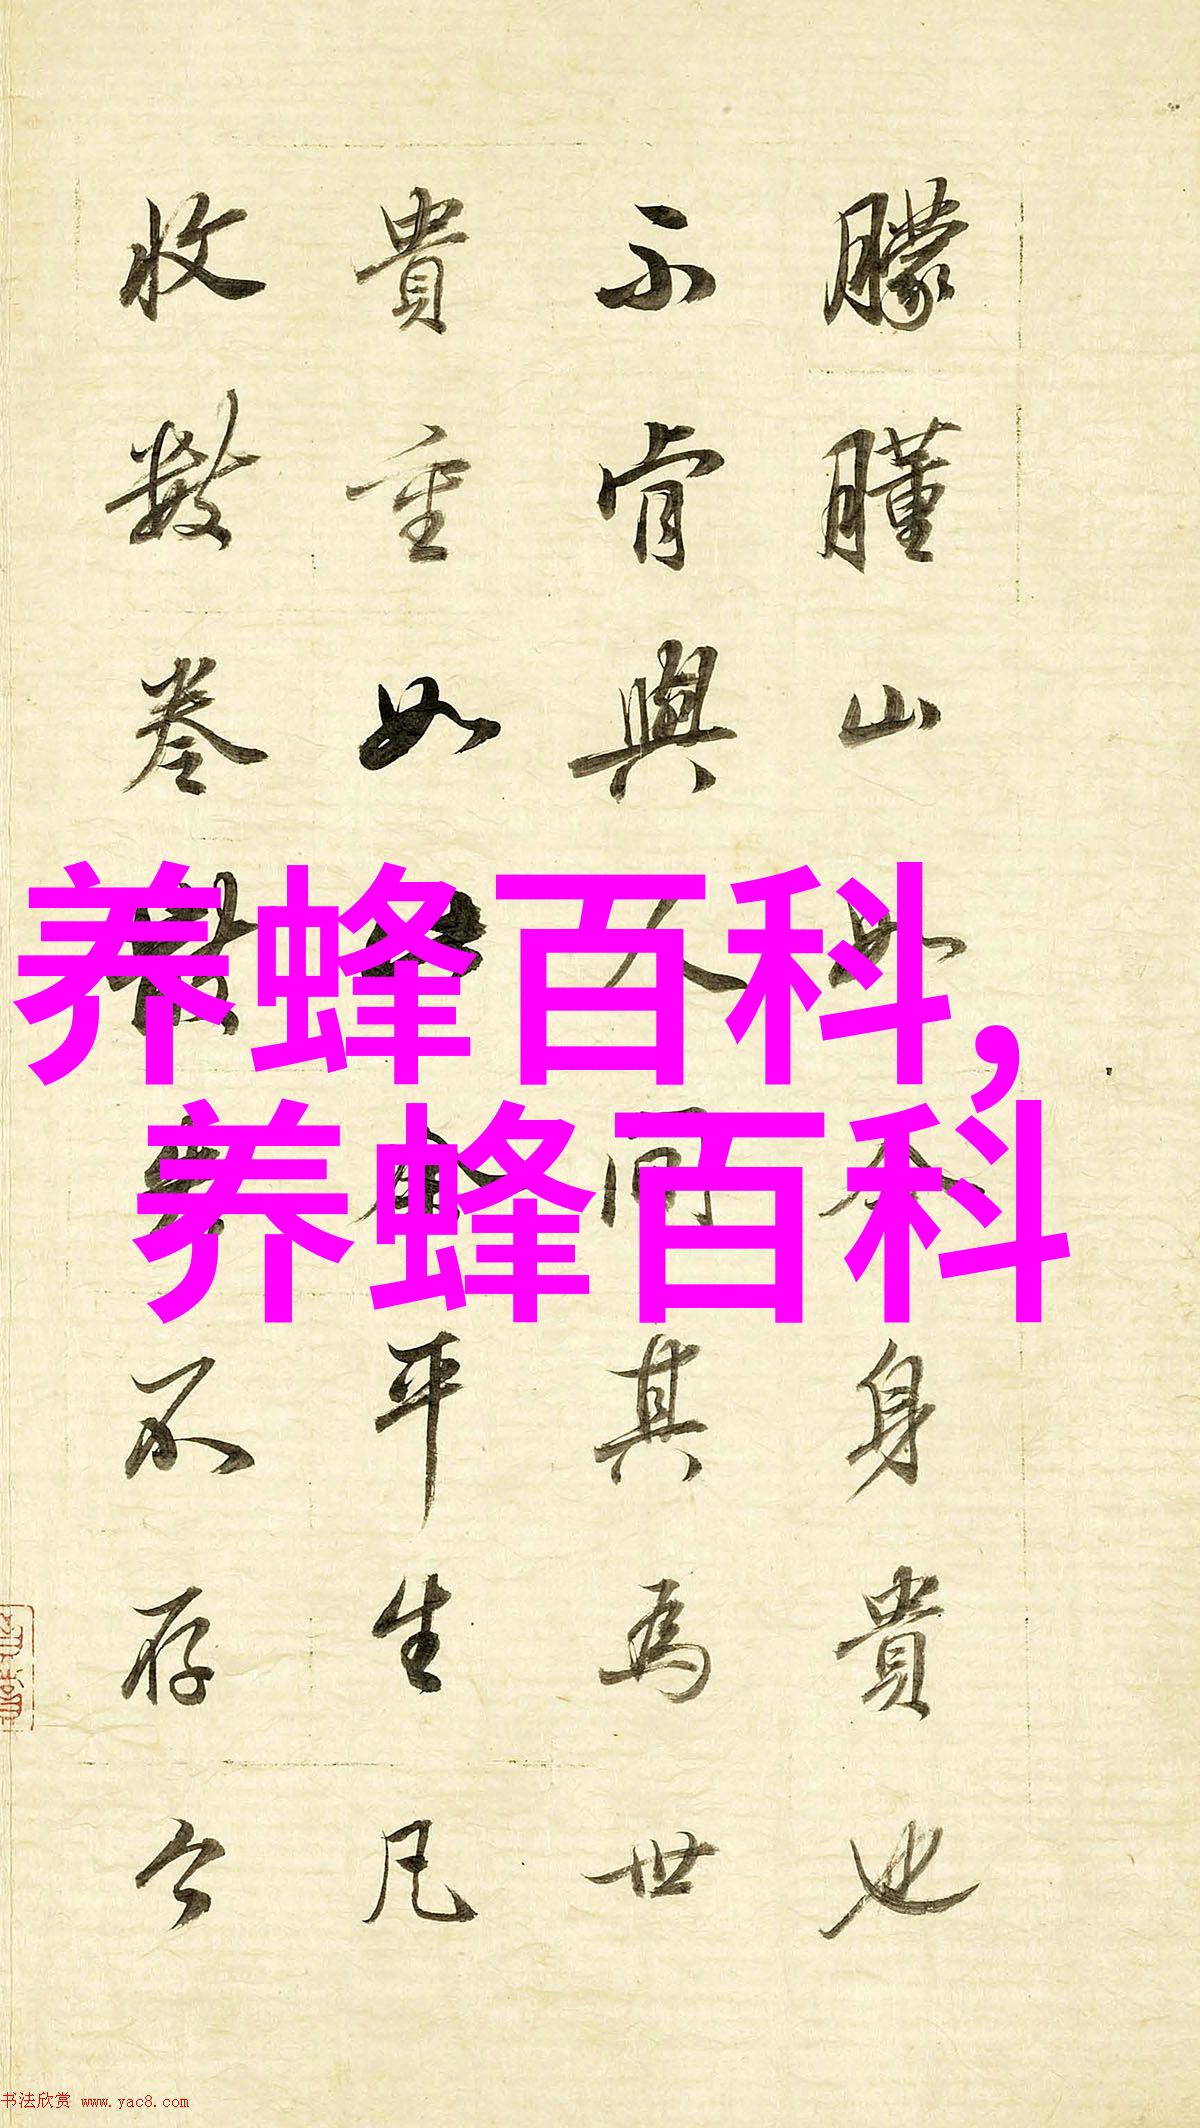 朦朣山如身貴也
不肯與人同其為世
貴重如余平生凡
收數卷不存今
养蜂百科,
养蜂百科
书法欣赏 www.yac8.com